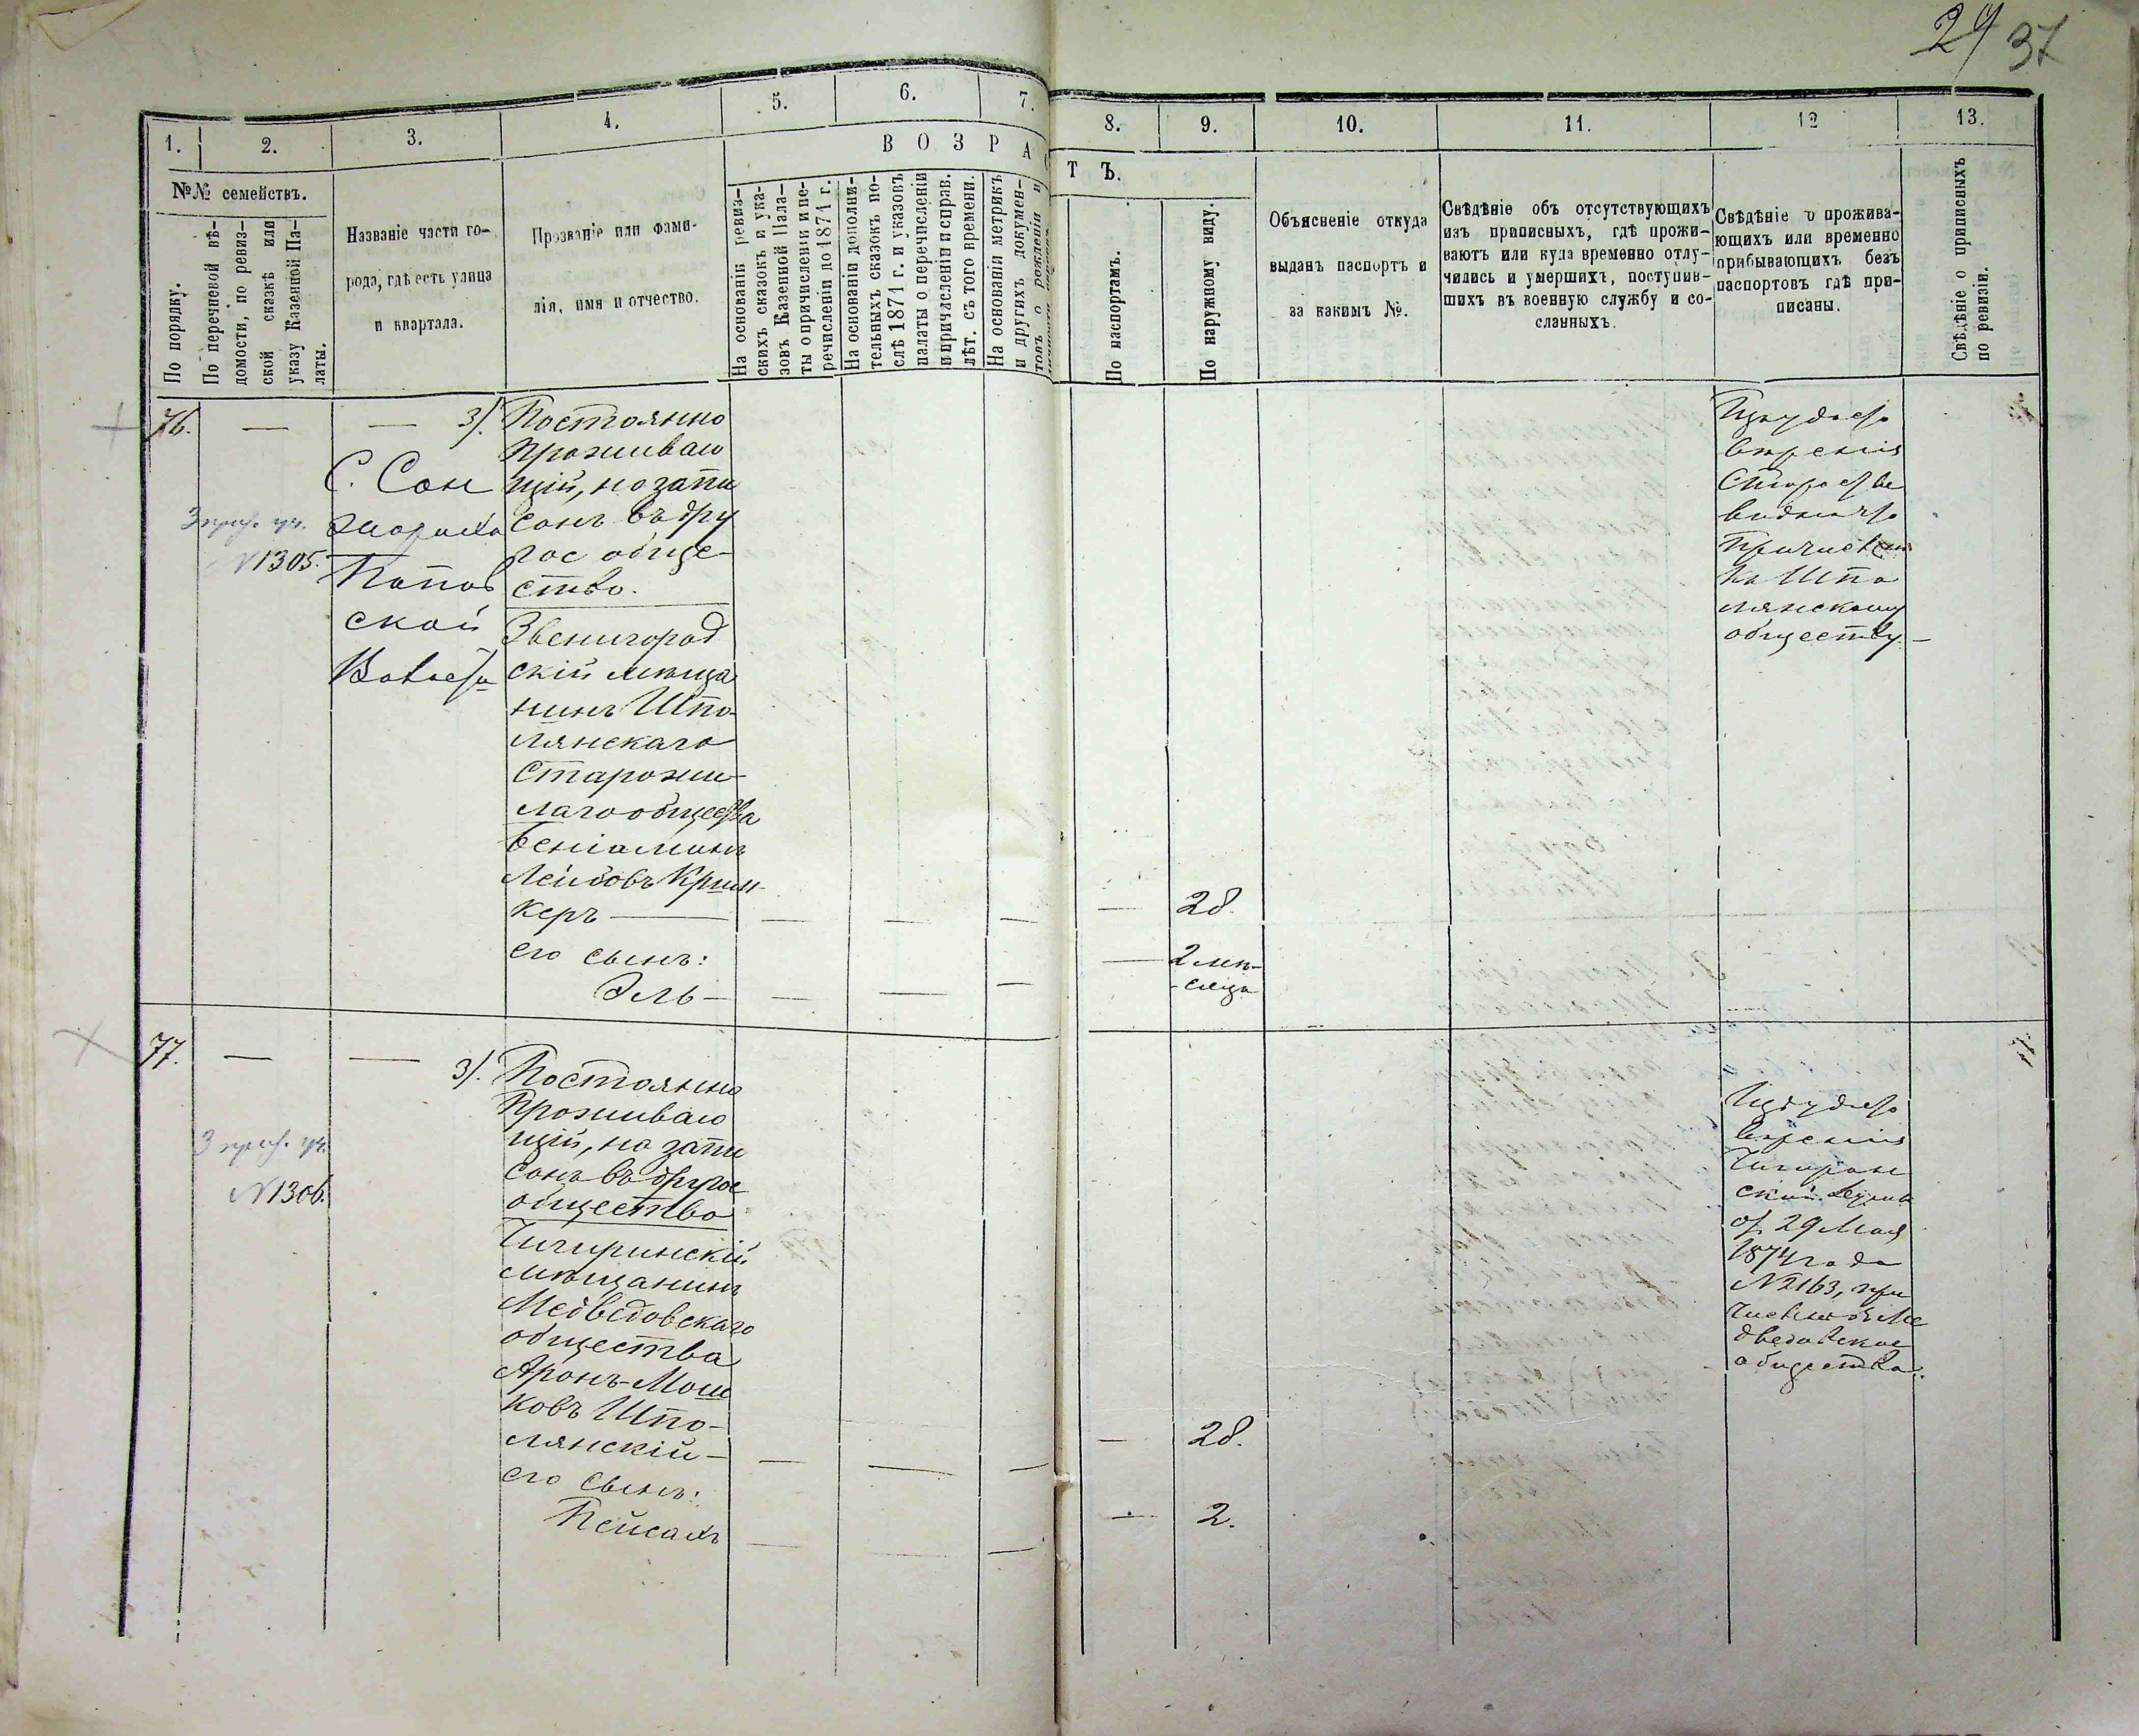 29 37
1. 2. 3. 4. 5. 6. 7. 8. 9. 10. 11. 12 13.
В О З Р А С Т Ъ.
№№ семействъ.
По порядку.
По перечневой вѣ-
домости, по ревиз-
ской сказкѣ или
указу Казенной Па-
латы.
Названіе части го-
рода, гдѣ есть улица
и квартала.
Прозваніе или фами-
лія, имя и отчество.
На основаніи ревиз-
скихъ сказокъ и ука-
зовъ Казенной Пала-
ты о причисленіи и пе-
речисленіи до 1871 г.
На основаніи дополни-
тельныхъ сказокъ по-
слѣ 1871 г. и указовъ
палаты о перечисленіи
и причисленіи и прав.
лѣт. съ того времени.
На основаніи метрикъ
и другихъ докумен-
товъ о рожденіи и
По паспортамъ.
По наружному виду.
Объясненіе откуда
выданъ паспортъ и
за какимъ №.
Свѣдѣніе объ отсутствующихъ
изъ приписныхъ, гдѣ прожи-
ваютъ или куда временно отлу-
чились и умершихъ, поступив-
шихъ въ военную службу и со-
сланныхъ.
Свѣдѣніе о прожива-
ющихъ или временно
прибывающихъ безъ
паспортовъ гдѣ при-
писаны.
Свѣдѣніе о приписныхъ
по ревизіи.
76. — — 3).
3 уч.
№ 1305.
С.
Постоянно
проживаю
щій, но запи
санъ въ дру
гое обще-
ство.
Звенигород
скій мѣща
нинъ Шпо-
лянскаго
старожи-
лаго общества
Веніаминъ
Лейбовъ Крин-
керъ — — — — — 28.
его сынъ: — 2 мѣ-
сяца
Эль — — — —
къ Шпо
лянскому
обществу —
77. — — 3).
3 уч.
№ 1306.
Постоянно
проживаю
щій, но запи
санъ въ другое
общество
Чигиринскій
мѣщанинъ
Медведовскаго
общества
Аронъ-Мош
ковъ Шпо-
лянскій — — — — — 28.
его сынъ:
Пейсахъ — — — — 2.
Чигирин
ской
от 29 Мая
1874 года
№ 2163, при
численъ Ме
дведовское
общество.